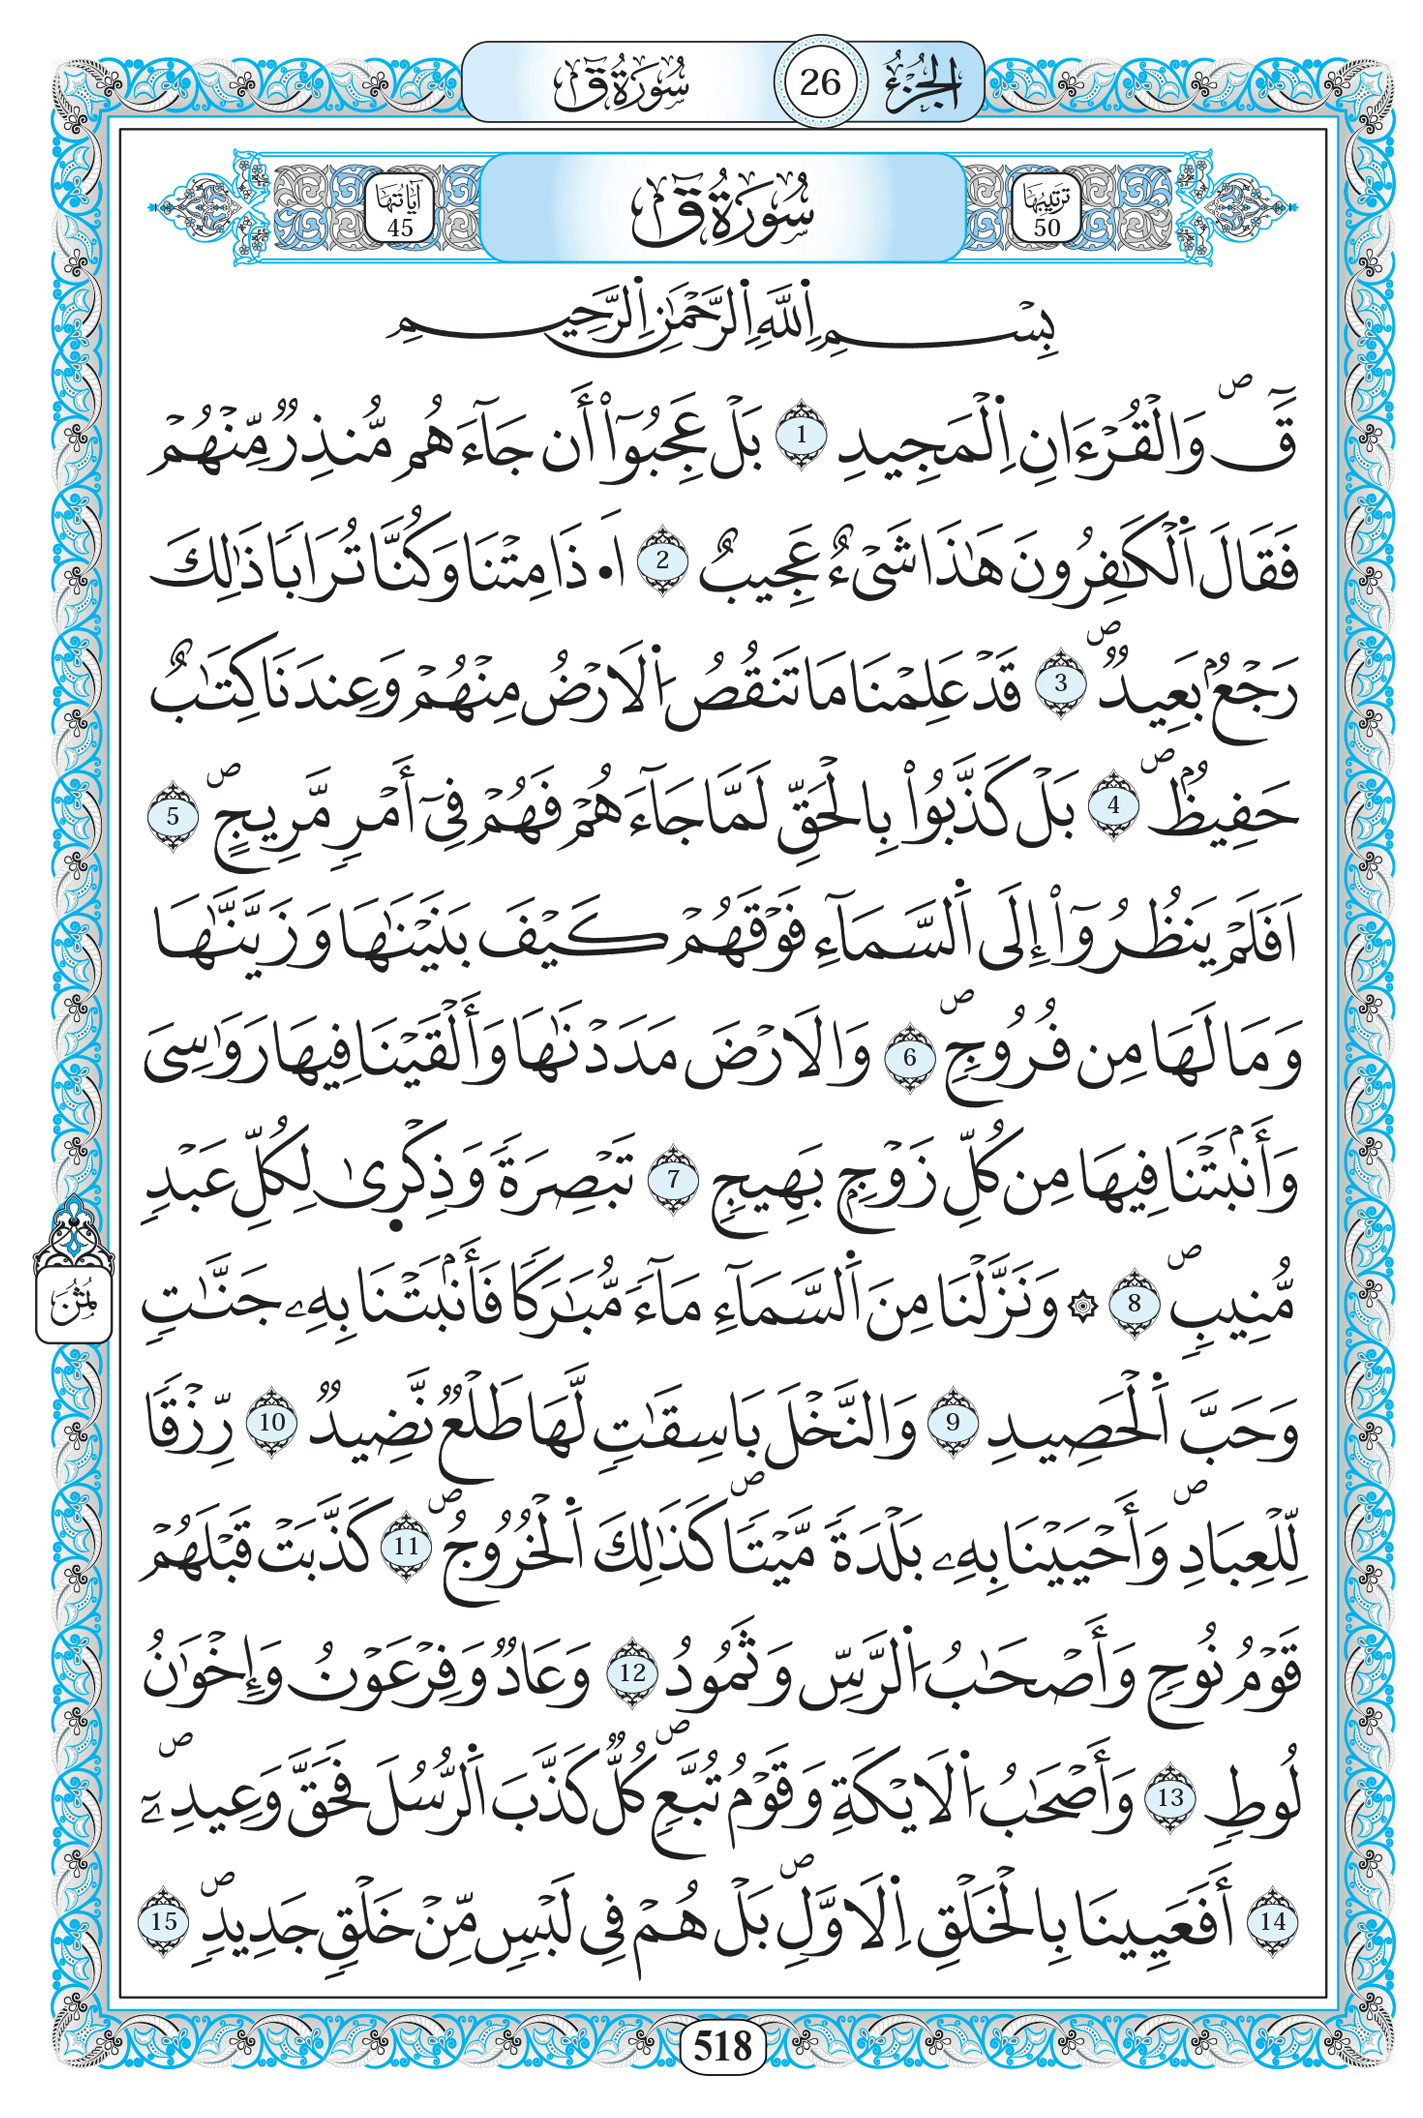 الجزء 26 سورة ق
ترتيبها 50 سورة ق آياتها 45
بِسْمِ اِللَّهِ اِلرَّحْمَٰنِ اِلرَّحِيمِ
قَٓ ۖ وَالْقُرْءَانِ اِلْمَجِيدِ 1 بَلْ عَجِبُوٓاْ أَن جَآءَهُم مُّنذِرٌ مِّنْهُمْ
فَقَالَ اَلْكَٰفِرُونَ هَٰذَا شَےْءٌ عَجِيبٌ 2 اَ•ذَا مِتْنَا وَكُنَّا تُرَاباً ذَٰلِكَ
رَجْعُۢ بَعِيدٌ ۖ 3 قَدْ عَلِمْنَا مَا تَنقُصُ اُلَارْضُ مِنْهُمْ وَعِندَنَا كِتَٰبٌ
حَفِيظُۢ ۖ 4 بَلْ كَذَّبُواْ بِالْحَقِّ لَمَّا جَآءَهُمْ فَهُمْ فِےٓ أَمْرٍ مَّرِيجٍ ۖ 5
اَفَلَمْ يَنظُرُوٓاْ إِلَى اَلسَّمَآءِ فَوْقَهُمْ كَيْفَ بَنَيْنَٰهَا وَزَيَّنَّٰهَا
وَمَا لَهَا مِن فُرُوجٍ ۖ 6 وَالَارْضَ مَدَدْنَٰهَا وَأَلْقَيْنَا فِيهَا رَوَٰسِىَ
وَأَنۢبَتْنَا فِيهَا مِن كُلِّ زَوْجِۢ بَهِيجٍ 7 تَبْصِرَةً وَذِكْر۪ىٰ لِكُلِّ عَبْدٍ
مُّنِيبٍ ۖ 8 ۞ وَنَزَّلْنَا مِنَ اَلسَّمَآءِ مَآءً مُّبَٰرَكاً فَأَنۢبَتْنَا بِهِۦ جَنَّٰتٍ
وَحَبَّ اَلْحَصِيدِ 9 وَالنَّخْلَ بَاسِقَٰتٍ لَّهَا طَلْعٌ نَّضِيدٌ 10 رِّزْقاً
لِّلْعِبَادِ ۖ وَأَحْيَيْنَا بِهِۦ بَلْدَةً مَّيْتاً ۖ كَذَٰلِكَ اَلْخُرُوجُ ۖ 11 كَذَّبَتْ قَبْلَهُمْ
قَوْمُ نُوحٍ وَأَصْحَٰبُ اُلرَّسِّ وَثَمُودُ 12 وَعَادٌ وَفِرْعَوْنُ وَإِخْوَٰنُ
لُوطٍ 13 وَأَصْحَٰبُ اُلَايْكَةِ وَقَوْمُ تُبَّعٍ ۖ كُلٌّ كَذَّبَ اَلرُّسُلَ فَحَقَّ وَعِيدِۦٓ ۖ
14 أَفَعَيِينَا بِالْخَلْقِ اِلَاوَّلِ ۖ بَلْ هُمْ فِى لَبْسٍ مِّنْ خَلْقٍ جَدِيدٍ ۖ 15
ثُمُن
518